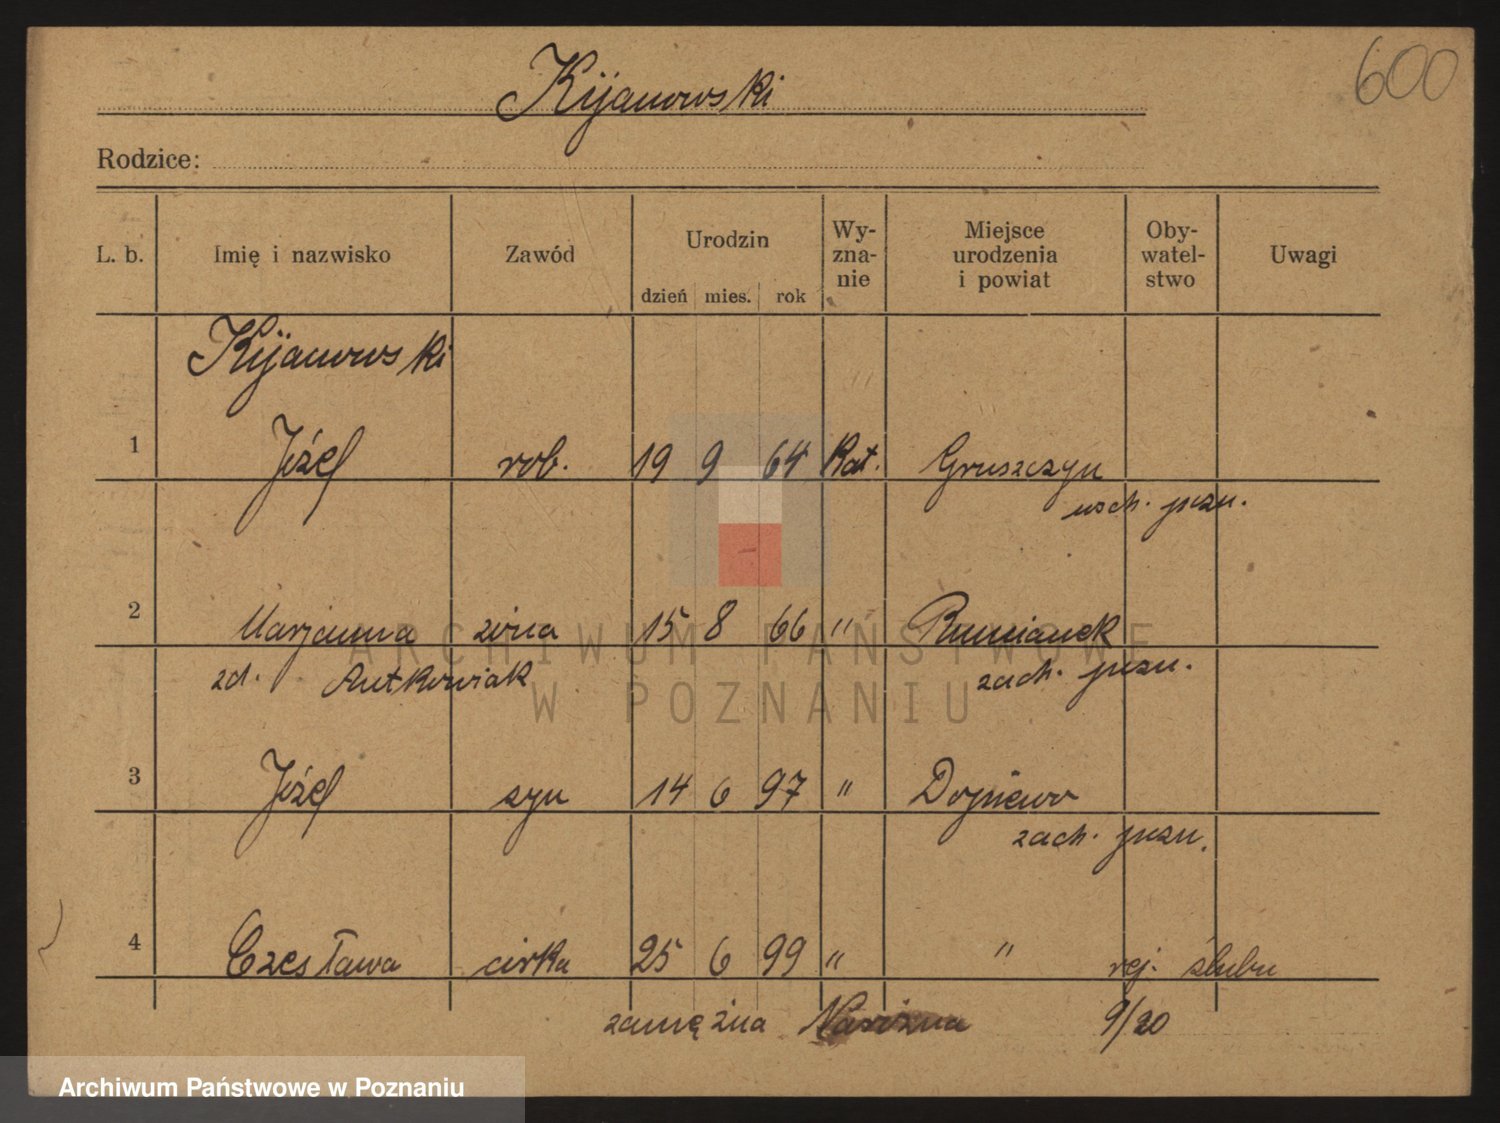 Kijanowski
600
Rodzice:
L. b. Imię i nazwisko Zawód Urodzin Wy-zna-nie Miejsce urodzenia i powiat Oby-watel-stwo Uwagi
dzień mies. rok
Kijanowski
1 Józef rob. 19 9 64 Kat. Gruszczyn
wsch. pozn.
2 Marjanna żona 15 8 66 " Rumianek
zd. Antkowiak zach. pozn.
3 Józef syn 14 6 97 " Dopiewo
zach. pozn.
4 Czesława córka 25 6 99 " " rej. ślubu
zamężna 9/20
ARCHIWUM PAŃSTWOWE
W POZNANIU
Archiwum Państwowe w Poznaniu